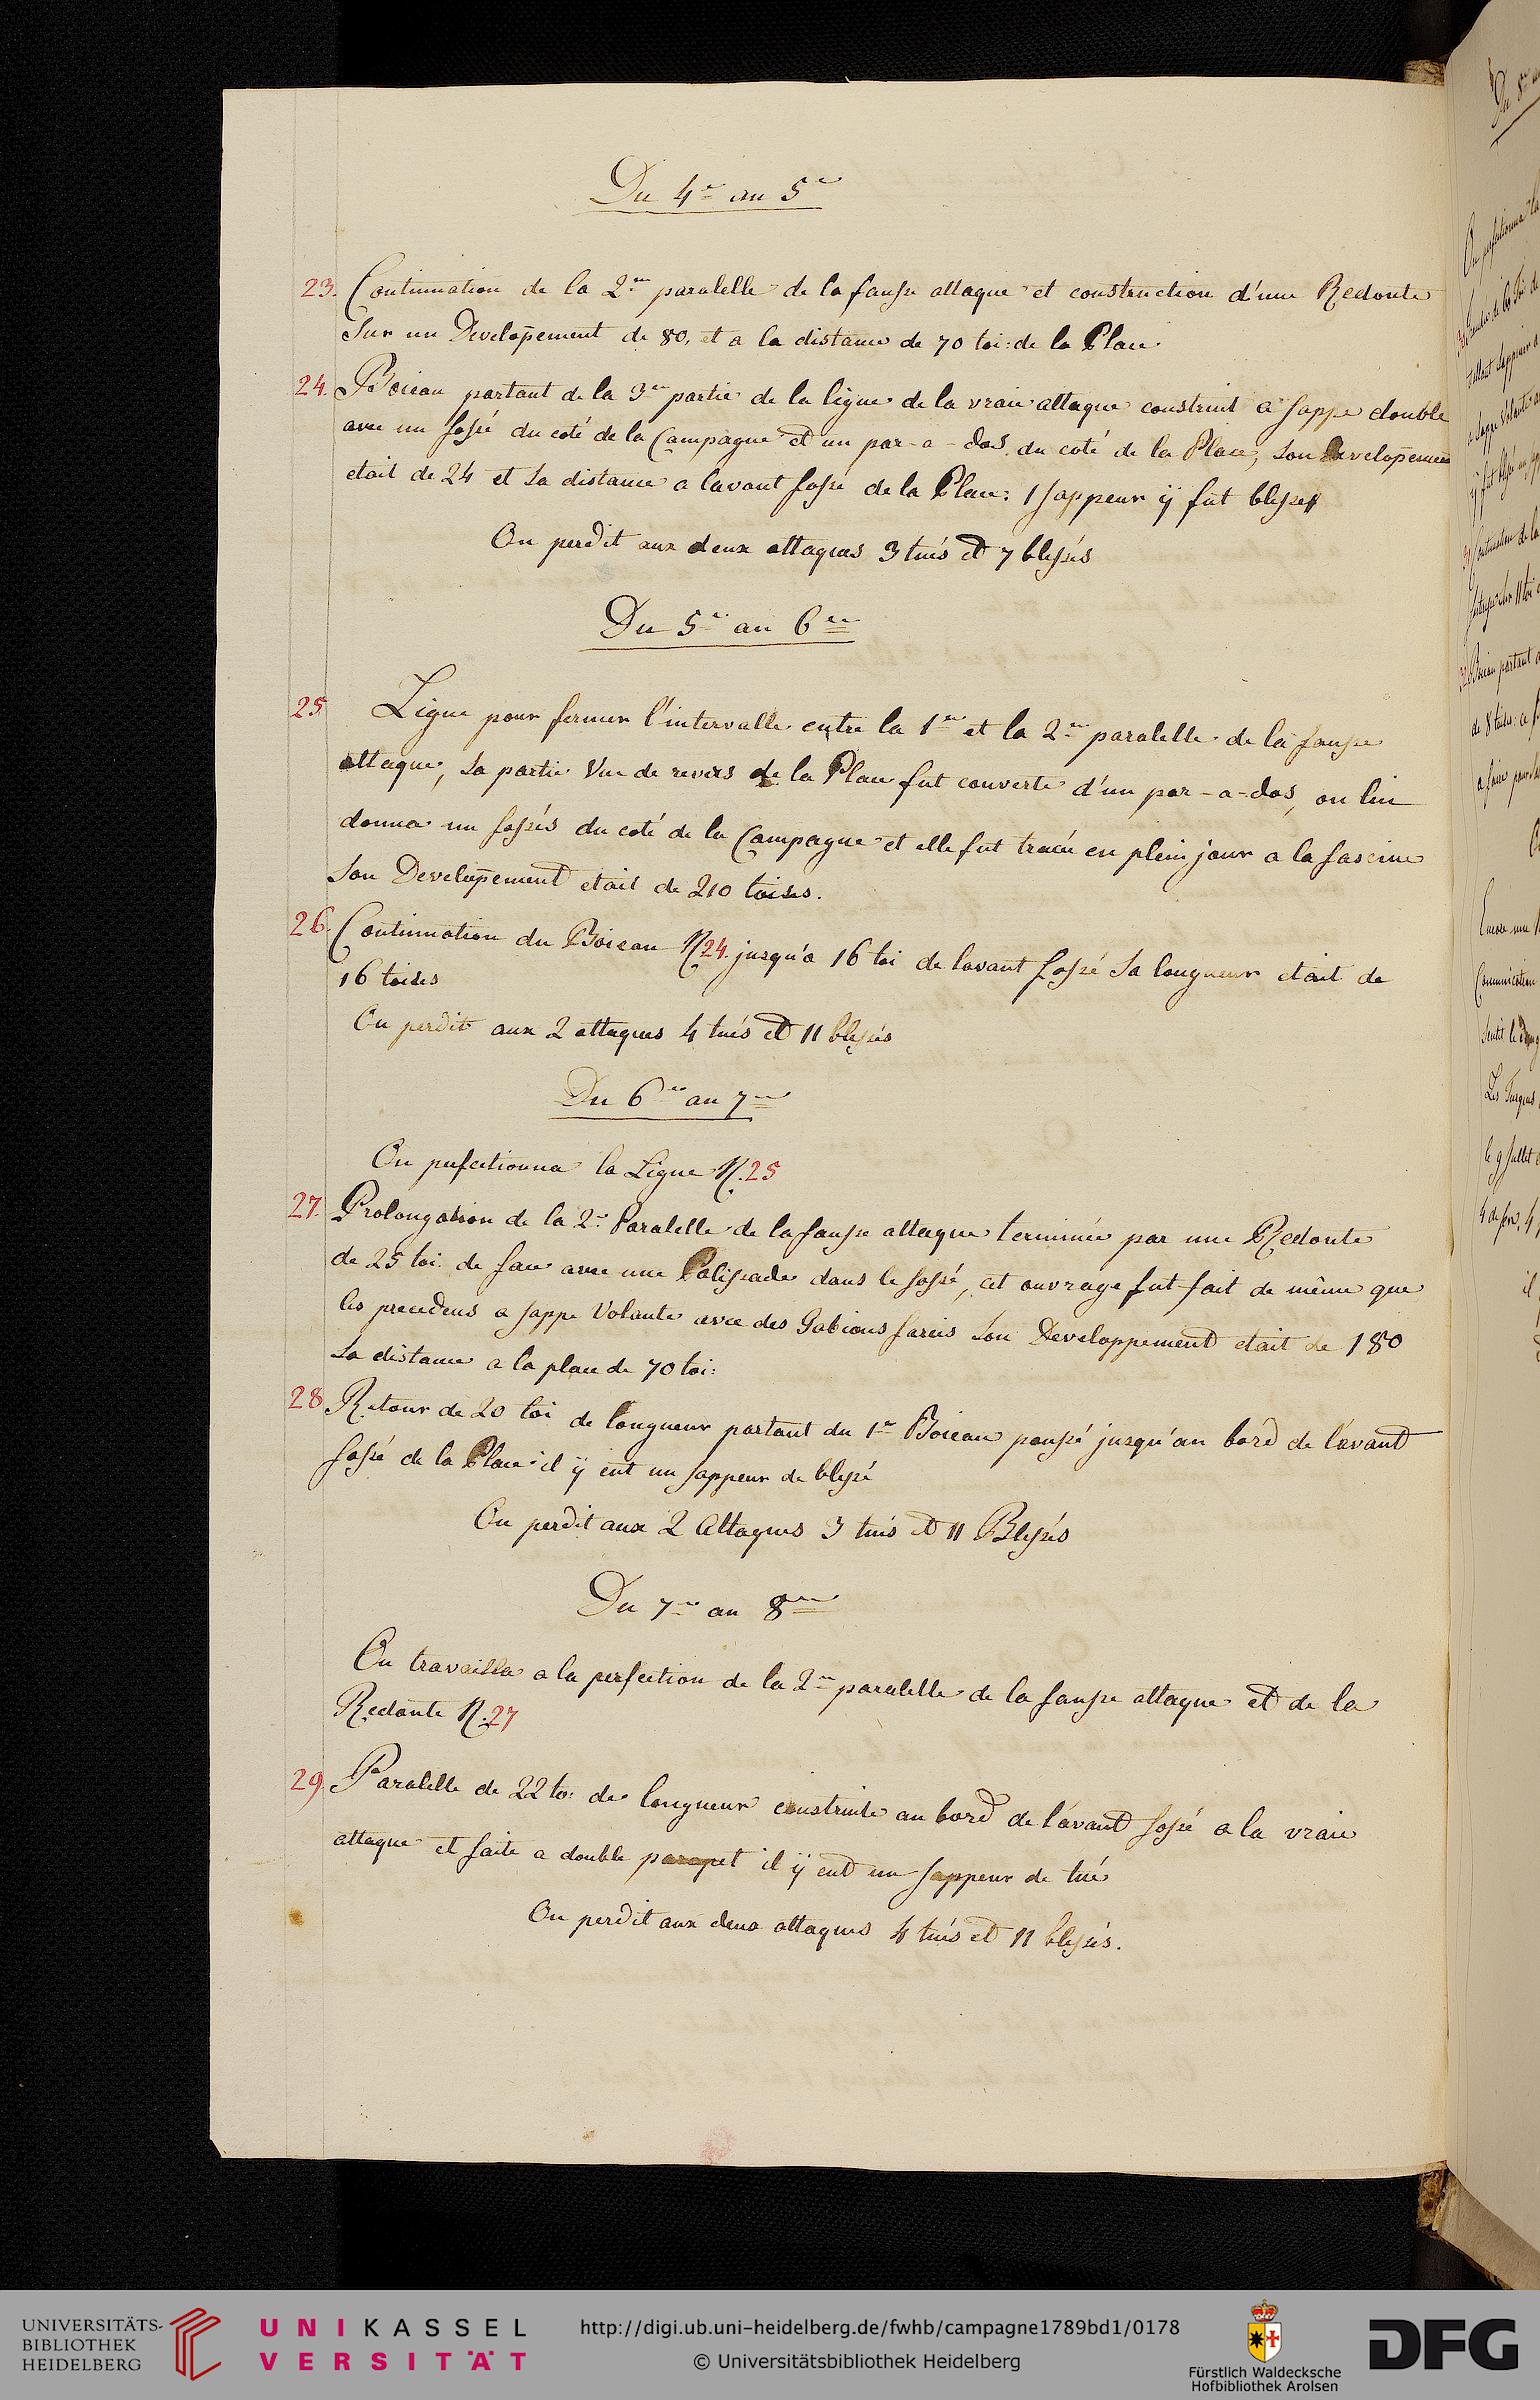 Du 4e au 5e
23. Continuation de la 2me paralelle de la fausse attaque et construction d'une Redoute
Sur un Developement de 80, et a la distance de 70 toi: de la Place
24. Boieau partant de la 3me partie de la ligne de la vraie attaque construit a sappe double
avec un fossé du coté de la Campagne et un par-a-dos du coté de la Place, son Developement
etait de 24 et sa distance a lavant fossé de la Place: 1 sappeur ÿ fût blessé
On perdit aux deux attaques 3 tués et 7 blessés
Du 5e au 6me
25 Ligne pour fermer l'intervalle entre la 1re et la 2me paralelle de la fausse
attaque, sa partie Vue de revers de la Place fut couverte d'un par-a-dos, on lui
donna un fossés du coté de la Campagne et elle fut tracée en plein jour a la fascine
Son Developement etait de 210 toises.
26. Continuation du Boieau N.24. jusqu'a 16 toi de lavant fossé sa longueur etait de
16 toises
On perdit aux 2 attaques 4 tués et 11 blessés
Du 6me au 7me
On perfectionna la Ligne N.25
27. Prolongation de la 2e Paralelle de la fausse attaque terminée par une Redoute
de 25 toi: de face avec une Palissade dans le fossé, cet ouvrage fut fait de même que
les precedens a sappe Volante avec des Gabions farcis son Developpement etait de 180
Sa distance a la place de 70 toi:
28 Retour de 20 toi de longueur partant du 1r Boieau poussé jusqu'au bord de l'avant
fossé de la Place il ÿ eut un sappeur de blessé
On perdit aux 2 Attaques 3 tués et 11 Blessés
Du 7me au 8me
On travailla a la perfection de la 2me paralelle de la fausse attaque et de la
Redoute N.27
29. Paralelle de 22 to: de longueur construite au bord de l'avant fossé a la vraie
attaque et faite a double parapet il ÿ eut un sappeur de tué
On perdit aux deux attaques 4 tués et 11 blessés.
UNIVERSITÄTS-
BIBLIOTHEK
HEIDELBERG
UNIKASSEL
VERSITÄT
http://digi.ub.uni-heidelberg.de/fwhb/campagne1789bd1/0178
© Universitätsbibliothek Heidelberg
Fürstlich Waldecksche
Hofbibliothek Arolsen
DFG